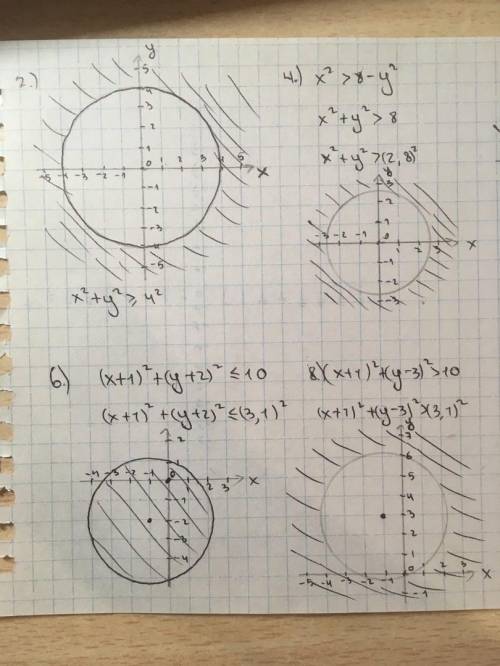 2.)
y
5
4
3
2
1
-5 -4 -3 -2 -1 0 1 2 3 4 5 x
-1
-2
-3
-4
-5
x² + y² ≥ 4²
4.) x² > 8 - y²
x² + y² > 8
x² + y² > (2,8)²
y
3
2
1
-3 -2 -1 0 1 2 3 x
-1
-2
-3
6.) (x+1)² + (y+2)² ≤ 10
(x+1)² + (y+2)² ≤ (3,1)²
2
1
-4 -3 -2 -1 0 1 2 3 x
-2
-3
-4
8.) (x+1)² + (y-3)² > 10
(x+1)² + (y-3)² > (3,1)²
y
7
6
5
4
3
2
1
-5 -4 -3 -2 -1 0 1 2 3 x
-1